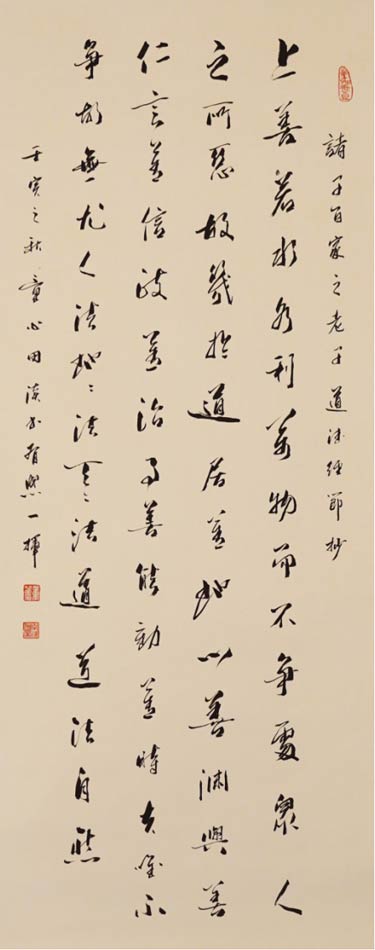 諸子百家之老子道德經節抄
上善若水水利萬物而不爭處眾人
之所惡故幾於道居善地心善淵與善
仁言善信政善治事善能動善時夫唯不
爭故無尤人法地〻法天〻法道道法自然
壬寅之秋心田一揮